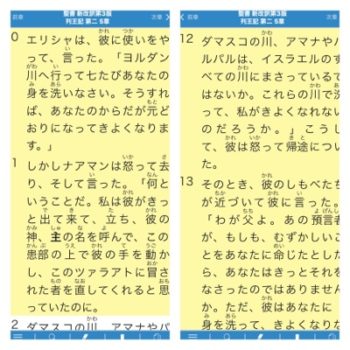 前章
聖書 新改訳第3版
列王記 第二 5章
0 エリシャは、彼に使いをや
って、言った。「ヨルダン
川へ行って七たびあなたの
身を洗いなさい。そうすれ
ば、あなたのからだが元ど
おりになってきよくなりま
す。」
1 しかしナアマンは怒って去
り、そして言った。「何と
いうことだ。私は彼がきっ
と出て来て、立ち、彼の
神、主の名を呼んで、この
患部の上で彼の手を動か
し、このツァラアトに冒さ
れた者を直してくれると思
っていたのに。
2 ダマスコの川、アマナやパ
聖書 新改訳第3版
列王記 第二 5章
次章
12 ダマスコの川、アマナやパ
ルパルは、イスラエルのす
べての川にまさっているで
はないか。これらの川で洗
って、私がきよくなれない
のだろうか。」こうし
て、彼は怒って帰途につい
た。
13 そのとき、彼のしもべたち
が近づいて彼に言った。
「わが父よ。あの預言者
が、もしも、むずかしいこ
とをあなたに命じたとした
ら、あなたはきっとそれを
なさったのではありません
か。ただ、彼はあなたに『
身を洗って、きよくなりな